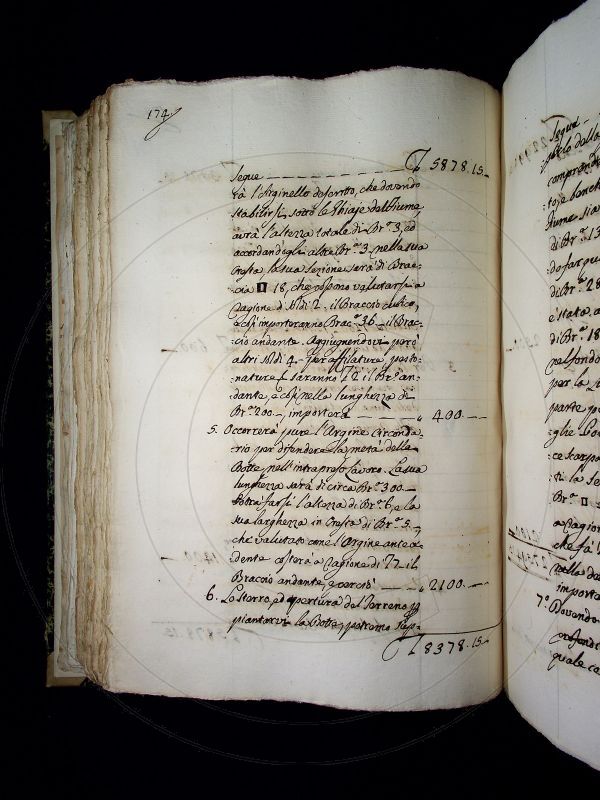 174
Segue ——— ₤ 5878.15.—
rà l'Arginello descritto, che dovendo
stabilirsi sotto le Ghiaje del Fiume,
avrà l'altezza totale di Br.ª 3, ed
accordandegli altre Br.ª 3 nella sua
Cresta, la sua sezione sarà di Brac-
cia 18, che possono valutarsi a
ragione di soldi 2. il Braccio cubico,
e così importeranno Brac.ª 36 il Brac-
cio andante. Aggiugnendovi però
altri soldi 4. per affilature, pesto-
nature & saranno ₤ 2 il Br.º an-
dante, e così nella lunghezza di
Br.ª 200.—, importerà ——— „ 400.——
5. Occorrerà pure l'Argine Circonda-
rio per difendere la metà della
Botte nell'intrapreso lavoro. La sua
lunghezza sarà di circa Br.ª 300.—
Potrà farsi l'altezza di Br.ª 6, e la
sua larghezza in Cresta di Br.ª 5.—,
che valutato come l'Argine antece-
dente costerà a ragione di ₤ 7.— il
Braccio andante, e perciò ——— „ 2100.——
6. Lo sterro, ed apertura del Terreno p
piantarvi la Botte, potremo sup-
₤ 8378.15.—
Segue
pelo dello
comprende
Fiume sia
di Br.ª 13
di Br.ª 28
è stato a
di Br.ª 18
nel fondo
per la
parte p
glie
ce scorpo
ti la Se
di Br.ª
a ragion
che fà l
nella de
importe
7.º Dovendo
profond
quale ca